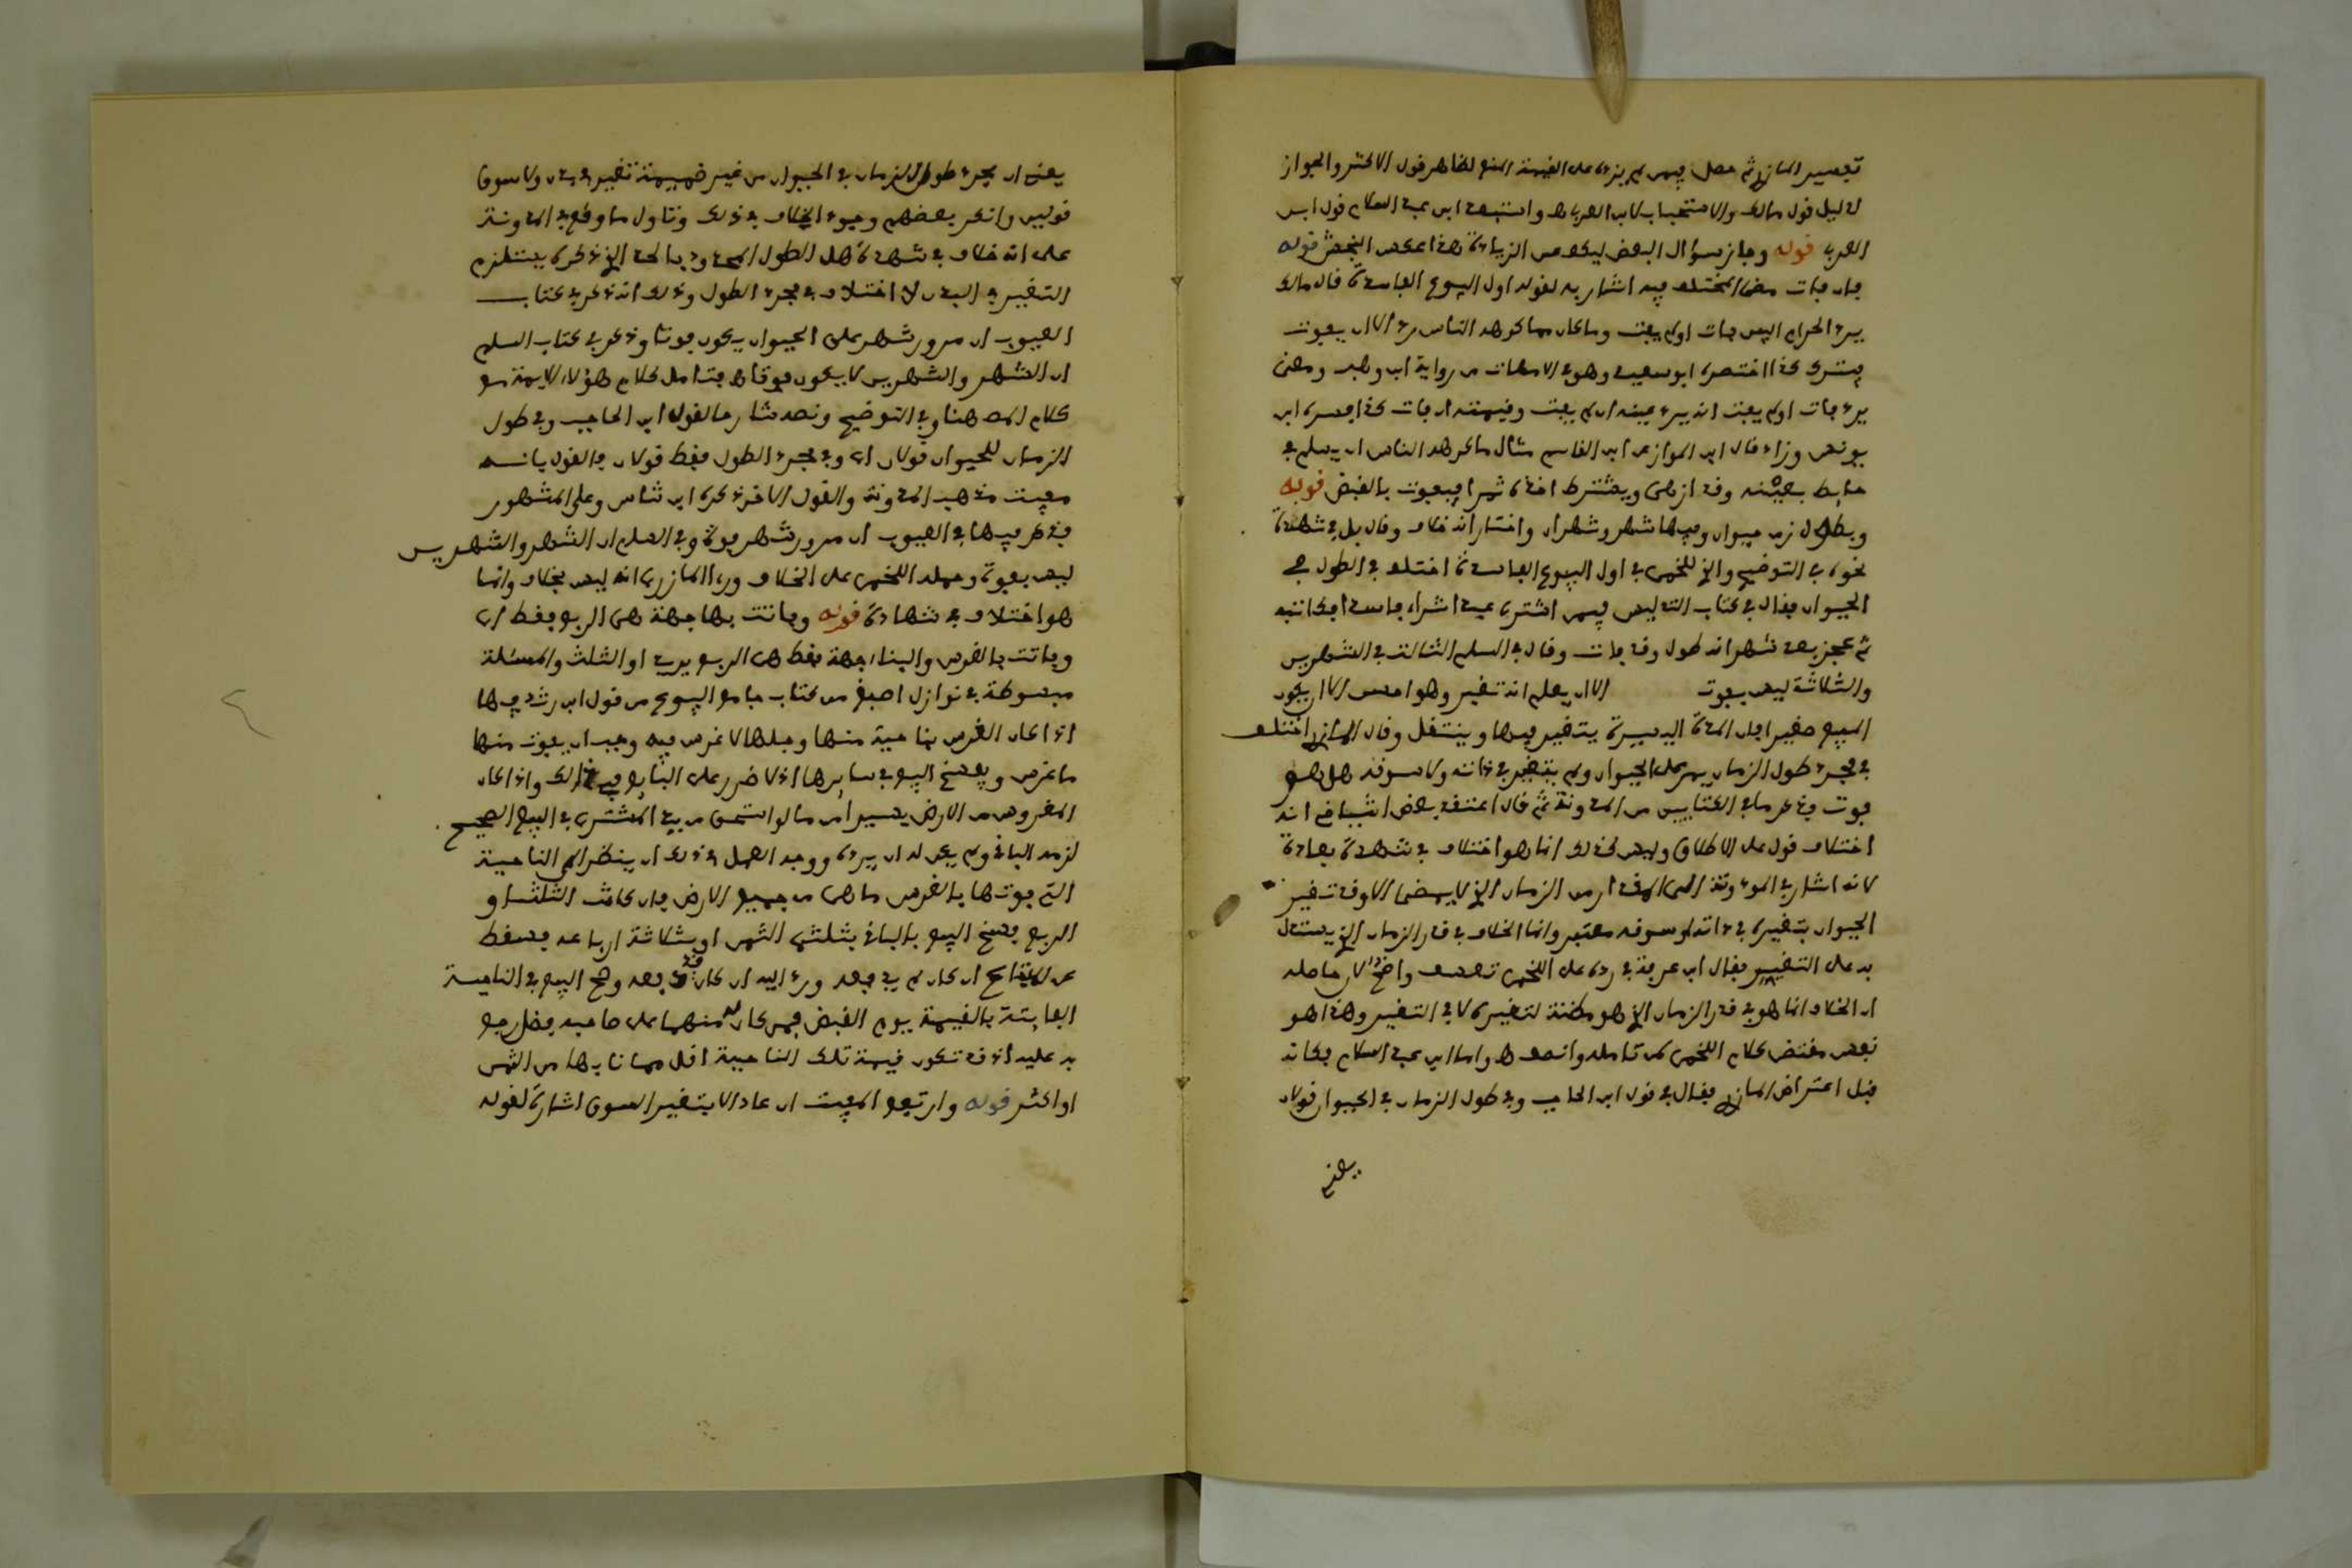 تفسير المازري ثم حصل فيمن لم يزد على القيمة المنع لظاهر قول الاكثر والجواز
لدليل قول مالك والاستحباب لابن العربي واستبعد ابن عبد السلام قول ابن
العربي قوله وجاز سؤال البعض ليكف عن الزيادة هذا عكس النجش قوله
فان فات مضى المختلف فيه اشار به لقوله اول البيوع الفاسدة قال مالك
يرد الحرام البين فات اولم يفت وما كان مما كرهه الناس رد الا ان يفوت
فيترك كذا اختصره ابو سعيد وهو في الامهات من رواية ابن وهب ومعنى
يرد فات اولم يفت انه يرد عينه ان لم يفت وقيمته ان فات كذا فسره ابن
يونس وزاد قال ابن المواز عن ابن القاسم مثال ما كرهه الناس ان يسلم في
حايط بعينه وقد ازهى ويشترط اخذه تمرا فيفوت بالقبض قوله
وبطول زمن حيوان وفيها شهر وشهران واختار انه خلاف وقال بل في شهادة
نحوه في التوضيح والذي للخمي في اول البيوع الفاسدة اختلف في الطول في
الحيوان فقال في كتاب التدليس فيمن اشترى عبدا شراء فاسدا فكاتبه
ثم عجز بعد شهر انه طول وقد فات وقال في السلم الثالث في الشهرين
والثلاثة ليس بفوت الا ان يعلم انه تغير وهو احسن الا ان يكون
المبيع صغيرا فان المدة اليسيرة يتغير فيها وينتقل وقال المازري اختلف
في مجرد طول الزمان يمر على الحيوان ولم يتغير في ذاته ولا سوقه هل هو
فوت وذكر ما في الكتابين من المدونة ثم قال اعتقد بعض اشياخي انه
اختلاف قول على الاطلاق وليس كذلك انما هو اختلاف في شهادة بعادة
لانه اشار في المدونة الى المقدار من الزمان الذي لا يمضي الا وقد تغير
الحيوان بتغيره في ذاته او سوقه معتبر وانما الخلاف في قدر الزمان الذي يستدل
به على التغيير فقال ابن عرفة في رده على اللخمي تعسف واضح لان حاصله
ان الخلاف انما هو في قدر الزمان الذي هو مظنة لتغيره لا في التغير وهذا هو
نفس مقتضى كلام اللخمي لمن تامله وانصف واما ابن عبد السلام فكانه
قبل اعتراض المازري فقال في قول ابن الحاجب وفي طول الزمان في الحيوان قولان
يعني
يعني ان مجرد طول الزمان في الحيوان من غير ضميمة تغير في بدن ولا سوق
قولين وانكر بعضهم وجود الخلاف في ذلك وتاول ما وقع في المدونة
على انه خلاف في شهادة هل الطول المحدود بالحد الذي ذكره يستلزم
التغير في البدن لا اختلاف في مجرد الطول وذلك انه ذكر في كتاب
العيوب ان مرور شهر على الحيوان يكون فوتا وذكر في كتاب السلم
ان الشهر والشهرين لا يكون فوتا فتامل كلام هؤلاء الايمة مع
كلام المص هنا وفي التوضيح ونصه شارحا لقول ابن الحاجب وفي طول
الزمان للحيوان قولان اي وفي مجرد الطول فقط قولان والقول بانه
مفيت مذهب المدونة والقول الاخر ذكره ابن شاس وعلى المشهور
فذكر فيها في العيوب ان مرور شهر فوت وفي السلم ان الشهر والشهرين
ليس بفوت وحمله اللخمي على الخلاف ورءا المازري انه ليس بخلاف وانما
هو اختلاف في شهادة قوله وفاتت بها جهة هي الربع فقط اي
وفاتت بالغرس والبناء جهة فقط هي الربع يريد او الثلث والمسئلة
مبسوطة في نوازل اصبغ من كتاب جامع البيوع من قول ابن رشد فيها
اذا كان الغرس بناحية منها وجلها لا غرس فيه وجب ان يفوت منها
ما غرس ويفسخ البيع في سايرها اذ لا ضرر على البايع في ذلك واذا كان
المغروس من الارض يسيرا مما لو استحق من يد المشتري في البيع الصحيح
لزمه الباقي ولم يكن له ان يرده ووجه العمل في ذلك ان ينظر الى الناحية
التي فوتها بالغرس ما هي من جميع الارض فان كانت الثلث او
الربع فسخ البيع في الباقي بثلثي الثمن او بثلاثة ارباعه فسقط
عن المبتاع ان كان لم يدفعه ورد اليه ان كان قد دفعه وصح البيع في الناحية
الفايتة بالقيمة يوم القبض فمن كان له منهما على صاحبه فضل رجع
به عليه اذ قد تكون قيمة تلك الناحية اقل مما نابها من الثمن
او اكثر قوله وارتفع المفيت ان عاد الا بتغير السوق اشارة لقوله